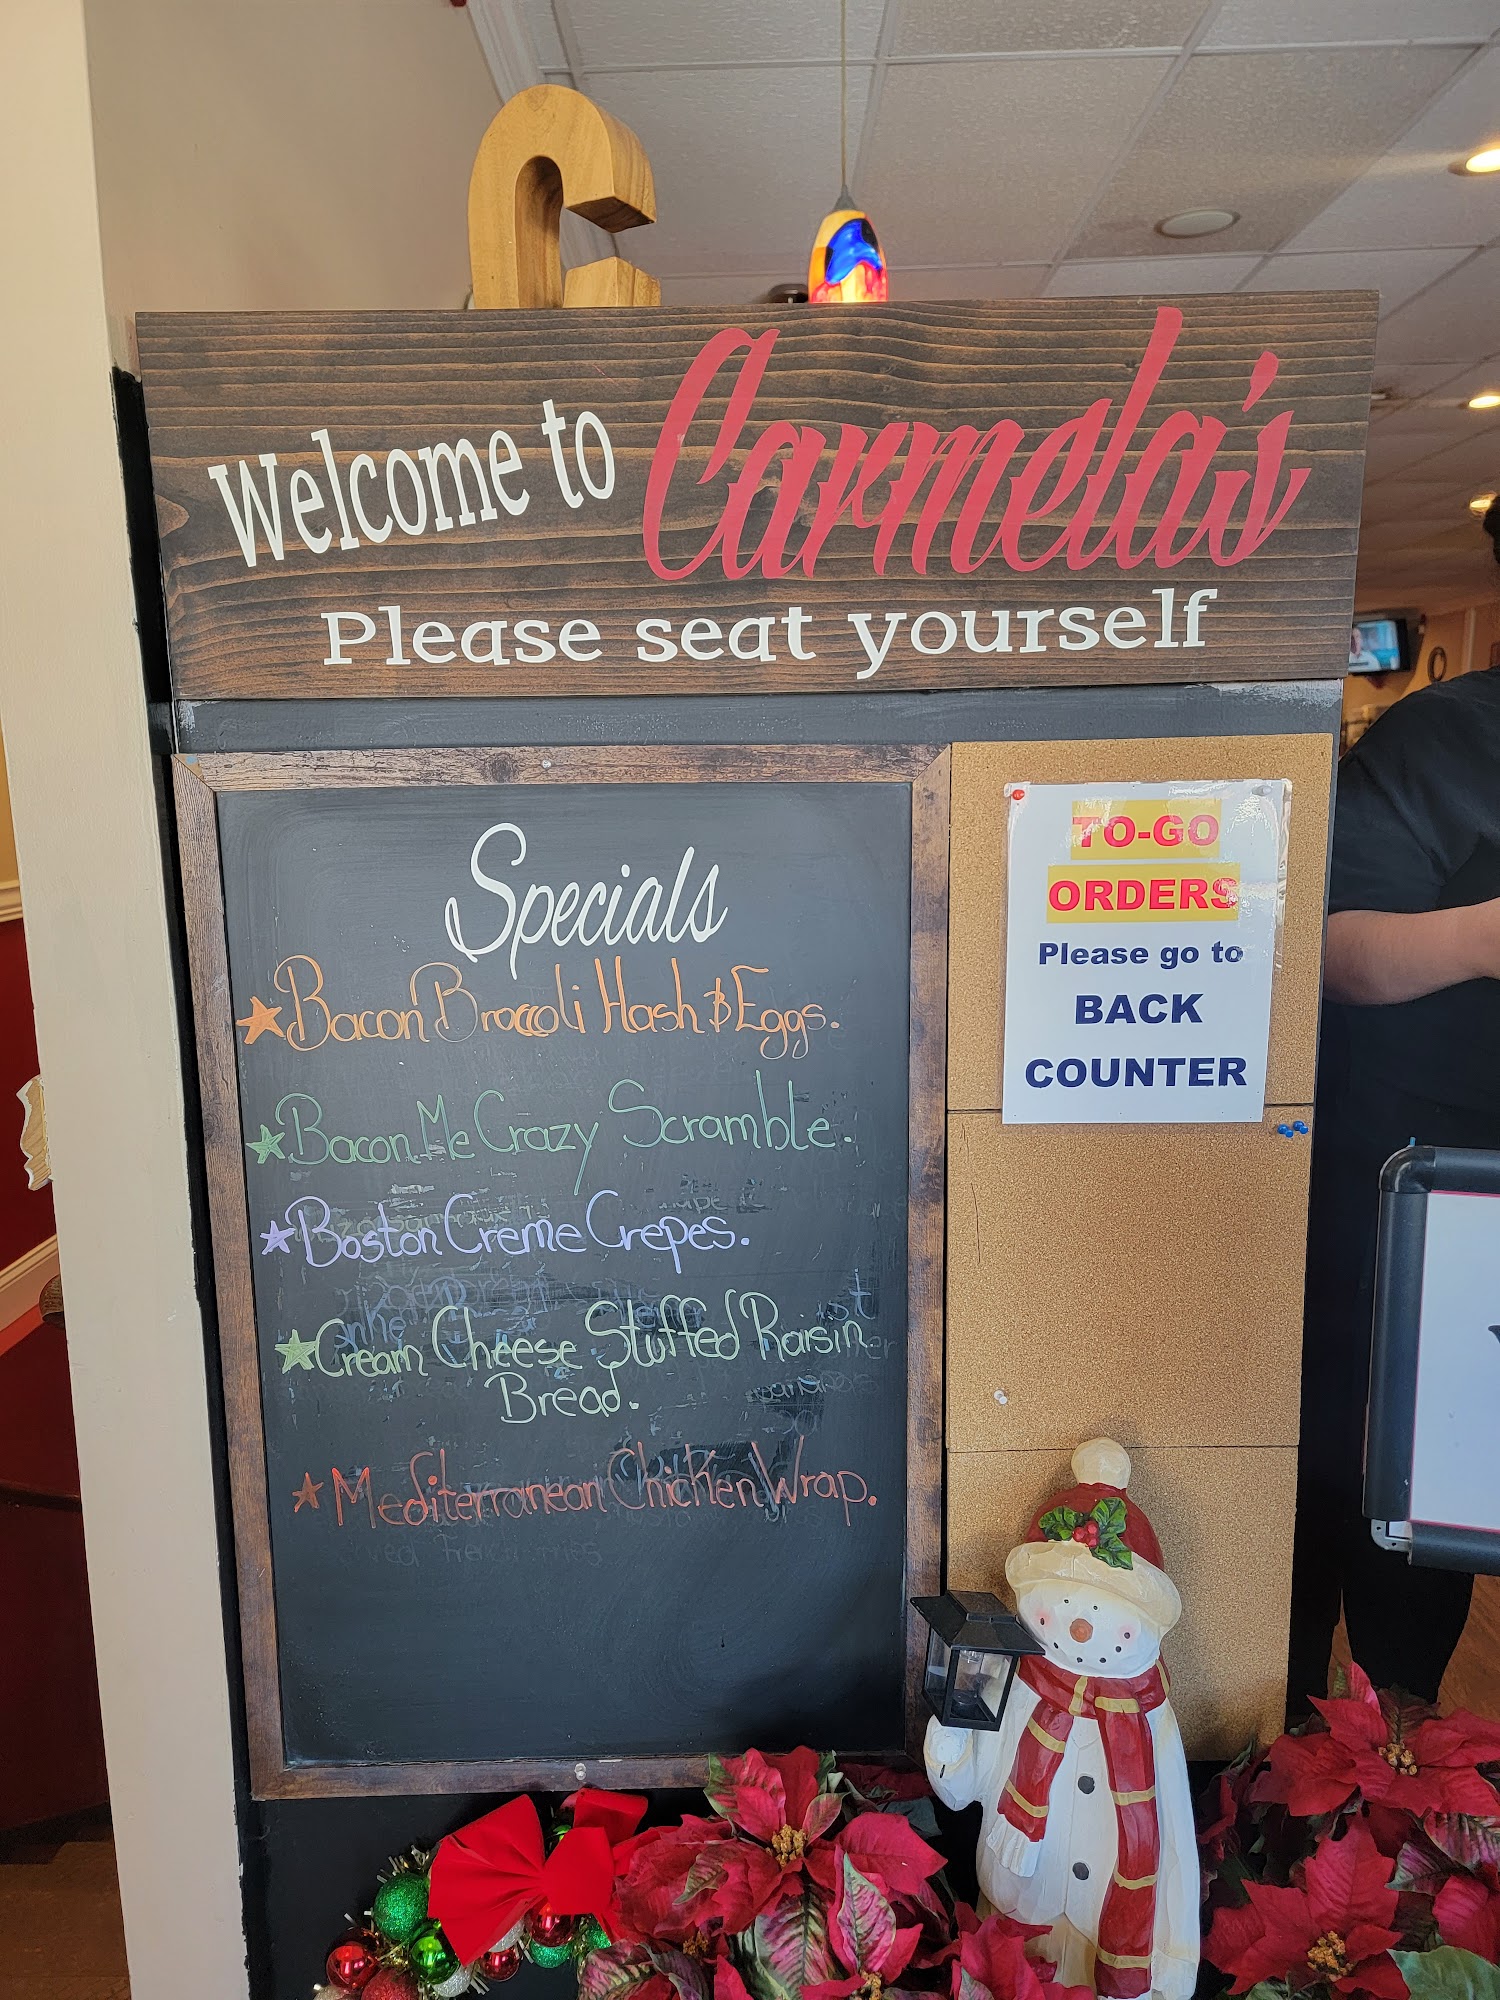 Welcome to Carmela's
Please seat yourself
Specials
Bacon Broccoli Hash & Eggs.
Bacon Me Crazy Scramble.
Boston Creme Crepes.
Cream Cheese Stuffed Raisin
Bread.
Mediterranean Chicken Wrap.
TO-GO
ORDERS
Please go to
BACK
COUNTER